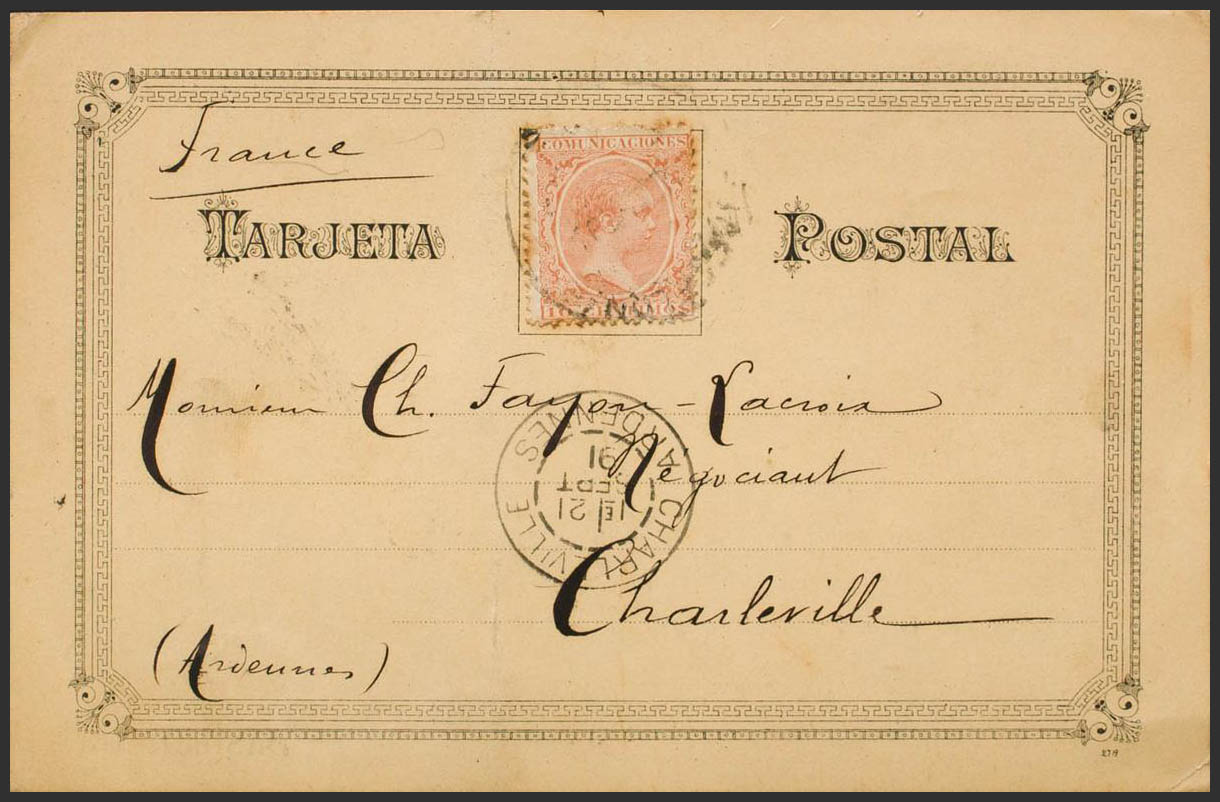 France
TARJETA POSTAL
COMUNICACIONES
10 CENTIMOS
Monsieur Ch. Fayon-Lacroix
Négociant
Charleville
(Ardennes)
CHARLEVILLE
1E 21
SEPT
91
ARDENNES